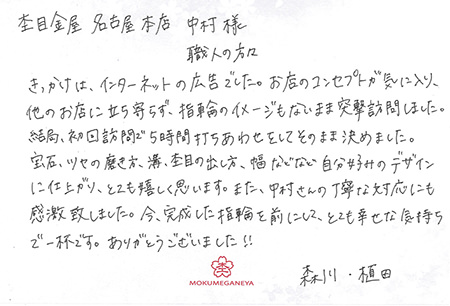 杢目金屋 名古屋本店 中村様
職人の方に
きっかけは、インターネットの広告でした。お店のコンセプトが気に入り、
他のお店に立ち寄らず、指輪のイメージもないまま突撃訪問しました。
結局、初回訪問で5時間打ちあわせをしてそのまま決めました。
宝石、ツヤの磨き方、溝、杢目の出し方、幅などなど自分好みのデザイン
に仕上がり、とても嬉しく思います。また、中村さんの丁寧な対応にも
感激致しました。今、完成した指輪を前にして、とても幸せな気持ち
で一杯です。ありがとうございました!!
MOKUMEGANEYA
森川・植田